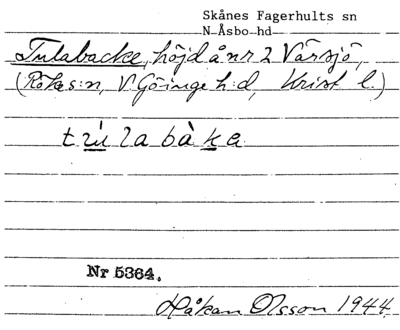 Skånes Fagerhults sn
N Åsbo hd
Tulabacke, höjd å nr 2 Värsjö,
(Röke s:n, V. Göinge h:d, Krist l.)
Nr 5364.
Håkan Olsson 1944.